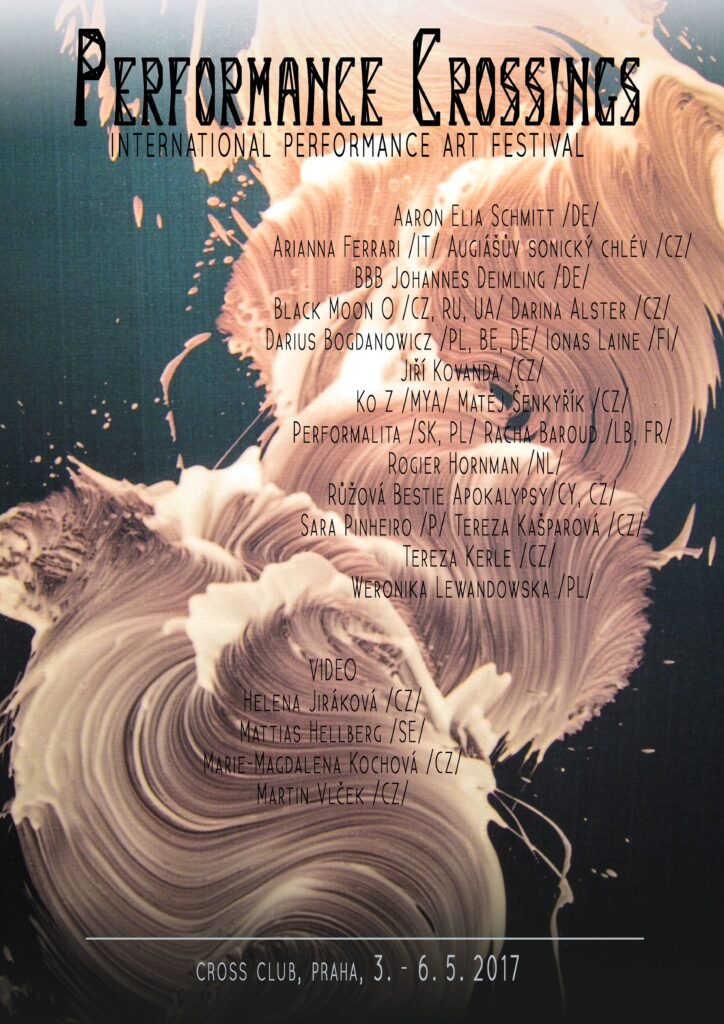 Performance Crossings
International Performance Art Festival
Aaron Elia Schmitt /DE/
Arianna Ferrari /IT/ Augiášův sonický chlév /CZ/
BBB Johannes Deimling /DE/
Black Moon O /CZ, RU, UA/ Darina Alster /CZ/
Darius Bogdanowicz /PL, BE, DE/ Ionas Laine /FI/
Jiří Kovanda /CZ/
Ko Z /MYA/ Matěj Šenkyřík /CZ/
Performalita /SK, PL/ Racha Baroud /LB, FR/
Rogier Hornman /NL/
Růžová Bestie Apokalypsy/CY, CZ/
Sara Pinheiro /P/ Tereza Kašparová /CZ/
Tereza Kerle /CZ/
Weronika Lewandowska /PL/
VIDEO
Helena Jiráková /CZ/
Mattias Hellberg /SE/
Marie-Magdalena Kochová /CZ/
Martin Vlček /CZ/
cross club, praha, 3. - 6. 5. 2017